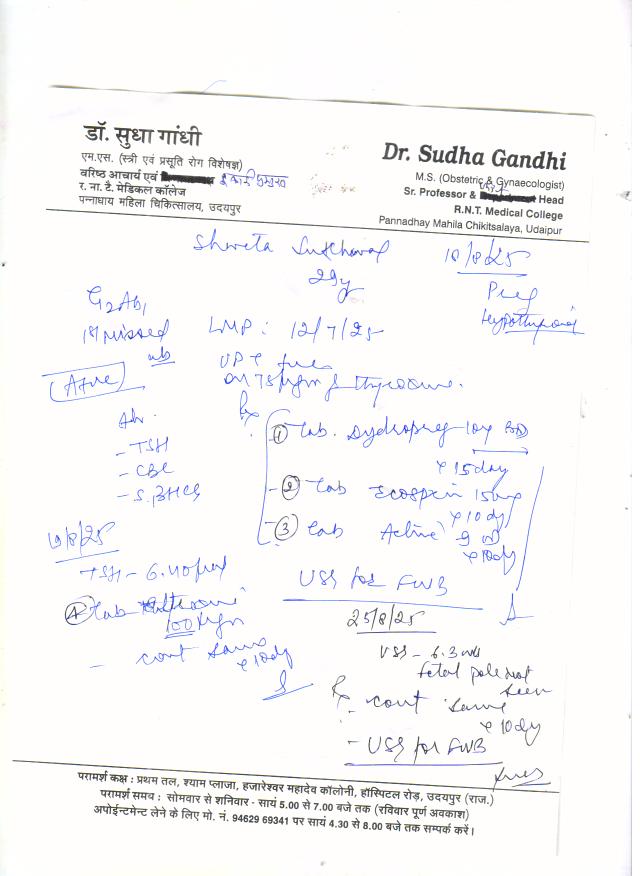 डॉ. सुधा गांधी
एम.एस. (स्त्री एवं प्रसूति रोग विशेषज्ञ)
वरिष्ठ आचार्य एवं
र. ना. टै. मेडिकल कॉलेज
पन्नाधाय महिला चिकित्सालय, उदयपुर
Dr. Sudha Gandhi
M.S. (Obstetric & Gynaecologist)
Sr. Professor & Head
R.N.T. Medical College
Pannadhay Mahila Chikitsalaya, Udaipur
Shweta
29y
18/8/25
Preg
Hypothyroid
G2Ab1
1st missed
LMP: 12/7/25
UPT
on 75 thyroxine.
Adv.
- TSH
- CBC
- S. BHCG
Rx
① Tab. Dydropreg 10mg BD
x 15day
- ② Tab Ecosprin 150mg
x 10dy
③ Tab Active 9
x 10dy
USS for FWB
/8/25
TSH - 6.40
Tab
100
- cont same
x 10dy
25/8/25
USS - 6.3 wk
fetal pole not
seen
Rx
- cont same
x 10dy
- USS for FWB
परामर्श कक्ष : प्रथम तल, श्याम प्लाजा, हजारेश्वर महादेव कॉलोनी, हॉस्पिटल रोड़, उदयपुर (राज.)
परामर्श समय : सोमवार से शनिवार - सायं 5.00 से 7.00 बजे तक (रविवार पूर्ण अवकाश)
अपोईन्टमेन्ट लेने के लिए मो. नं. 94629 69341 पर सायं 4.30 से 8.00 बजे तक सम्पर्क करें।